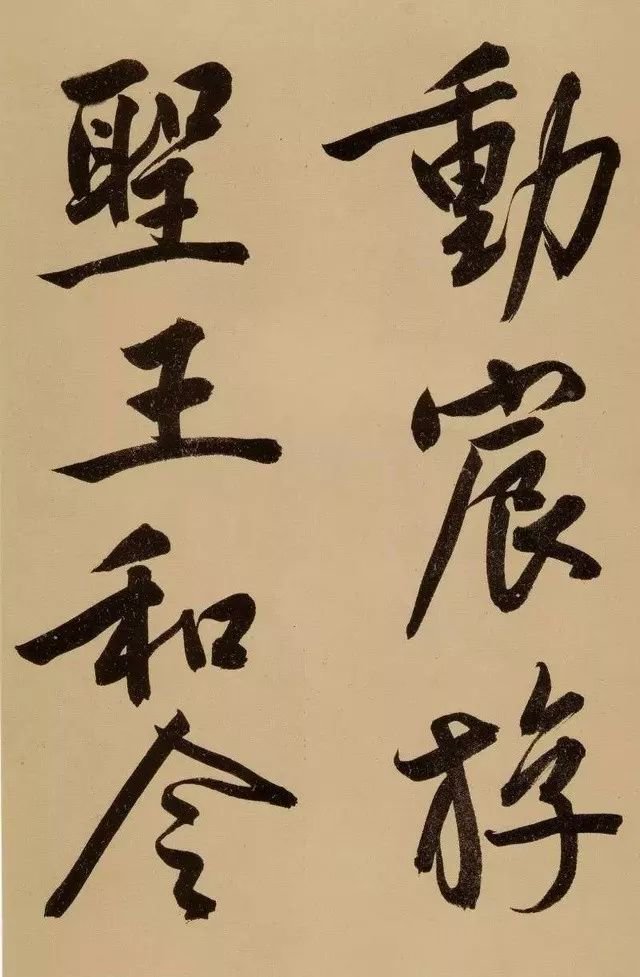 動宸游
聖王和令